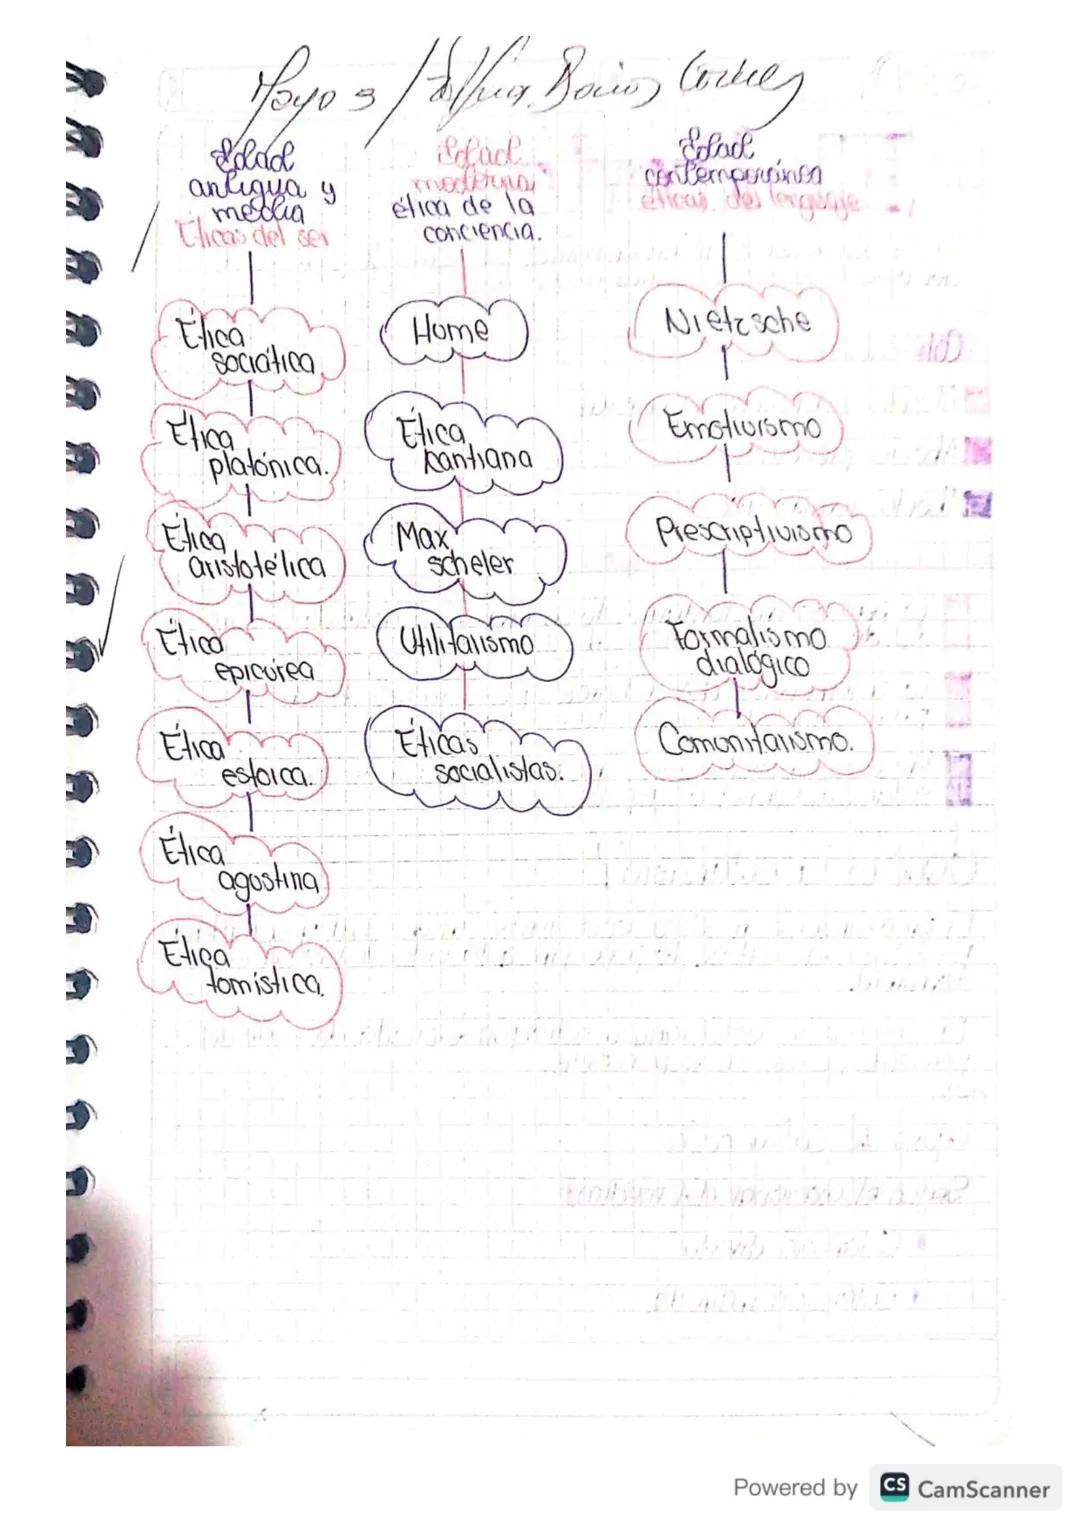 Mayo 3 /
Edad
antigua y
media
Éticas del ser
Ética
socrática
Ética
platónica.
Ética
aristotélica
Ética
epicúrea
Ética
estoica.
Ética
agostina
Ética
tomística.
Edad
moderna,
ética de la
conciencia.
Hume
Ética
kantiana
Max
scheler
Utilitarismo
Éticas
socialistas.
Edad
contemporánea
éticas del lenguaje
Nietzsche
Emotivismo
Prescriptivismo
Formalismo
dialógico
Comunitarismo.
Powered by CS CamScanner